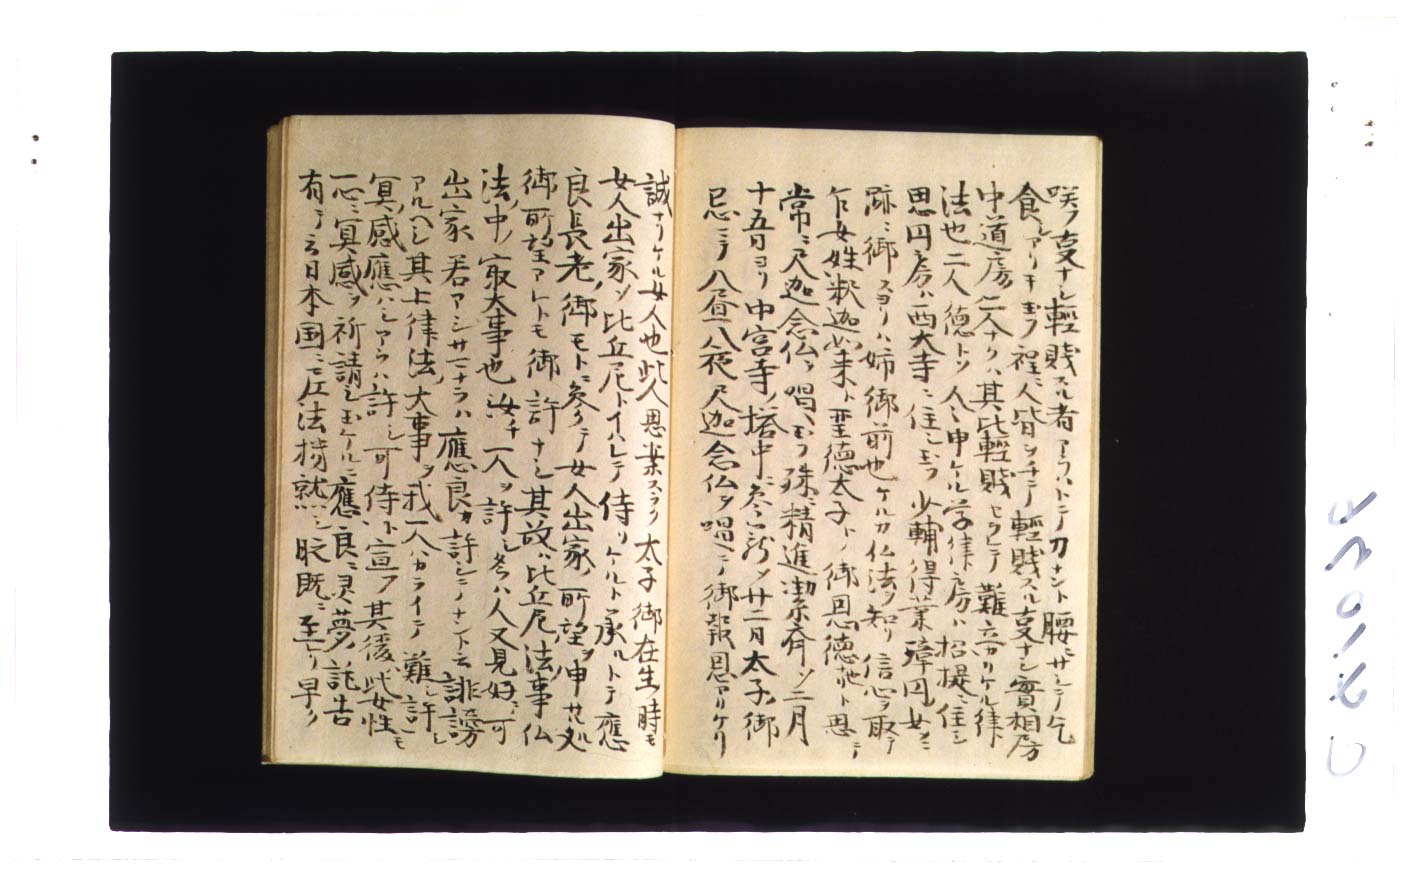 咲フ事ナシ軽賤スル者アラハトテ刀ナント腰ニサシテ乞
食シアリキ玉フ程ニ人皆ヲチテ軽賤スル事ナシ實相房
中道房二人ナクハ其比軽賤セラレテ難立カリケル律
法也二人徳トソ人々申ケル学律房ハ招提ニ住シ
思円房ハ西大寺ニ住シ玉フ少輔得業璋円女ニ
跡ニ御スヨリハ姉御前也ケルカ仏法ヲ知リ信心ヲ取テ
乍女姓釈迦如来ト聖徳太子トノ御恩徳ト思テ
常ニ尺迦念仏ヲ唱ヘ玉フ殊ニ精進潔斉ソ二月
十五日ヨリ中宮寺ノ塔中ニ参籠ソ廿二月太子ノ御
忌ニテ八昼八夜尺迦念仏ヲ唱ヘテ御報恩アリケリ
誠ナリケル女人也此人思案スラク太子御在生ノ時モ
女人出家ソ比丘尼トイハレテ侍リケルト承ルトテ應
良長老ノ御モトニ参クテ女人出家ノ所望ヲ申サル処
御所望アレトモ御許ナシ其故ハ比丘尼ノ法事仏
法ノ中ノ冣大事也汝チ一人ヲ許シ者ハ人又見好テ可
出家若アシサマナラハ應良カ許シテナント云誹謗
アルヘシ其上律法ノ大事ヲ我一人ハカライテ難許シ
冥ノ感應ハシアラハ許シ可侍ト宣フ其後此女性モ
一心ニ冥感ヲ祈請シ玉ケルニ應良ニ霊夢ノ託告
有テ云日本国ニ正法機就シ時既ニ至レリ早ク